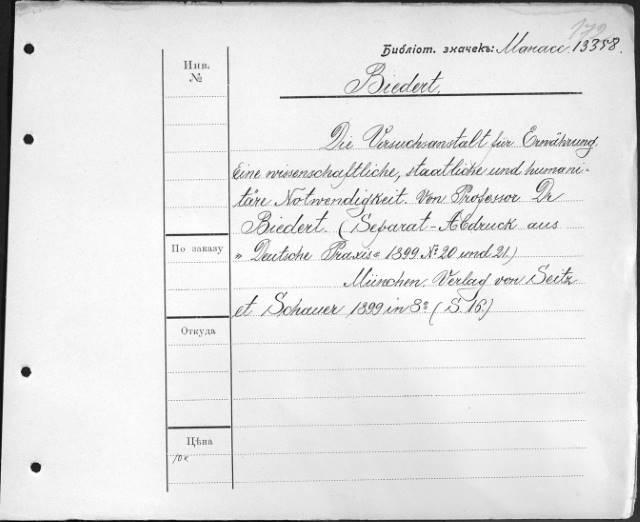 172
Библіот. значекъ: Манасс. 13358.
Инв.
№
Biedert.
Die Versuchsanstalt für Ernährung.
Eine wissenschaftliche, staatliche und humani-
täre Notwendigkeit. Von Professor Dr
Biedert. (Separat-Abdruck aus
По заказу
„ Deutsche Praxis" 1899 № 20 und 21.)
München. Verlag von Seitz
et Schauer 1899 in 8º (S. 16.)
Откуда
Цѣна
10 к